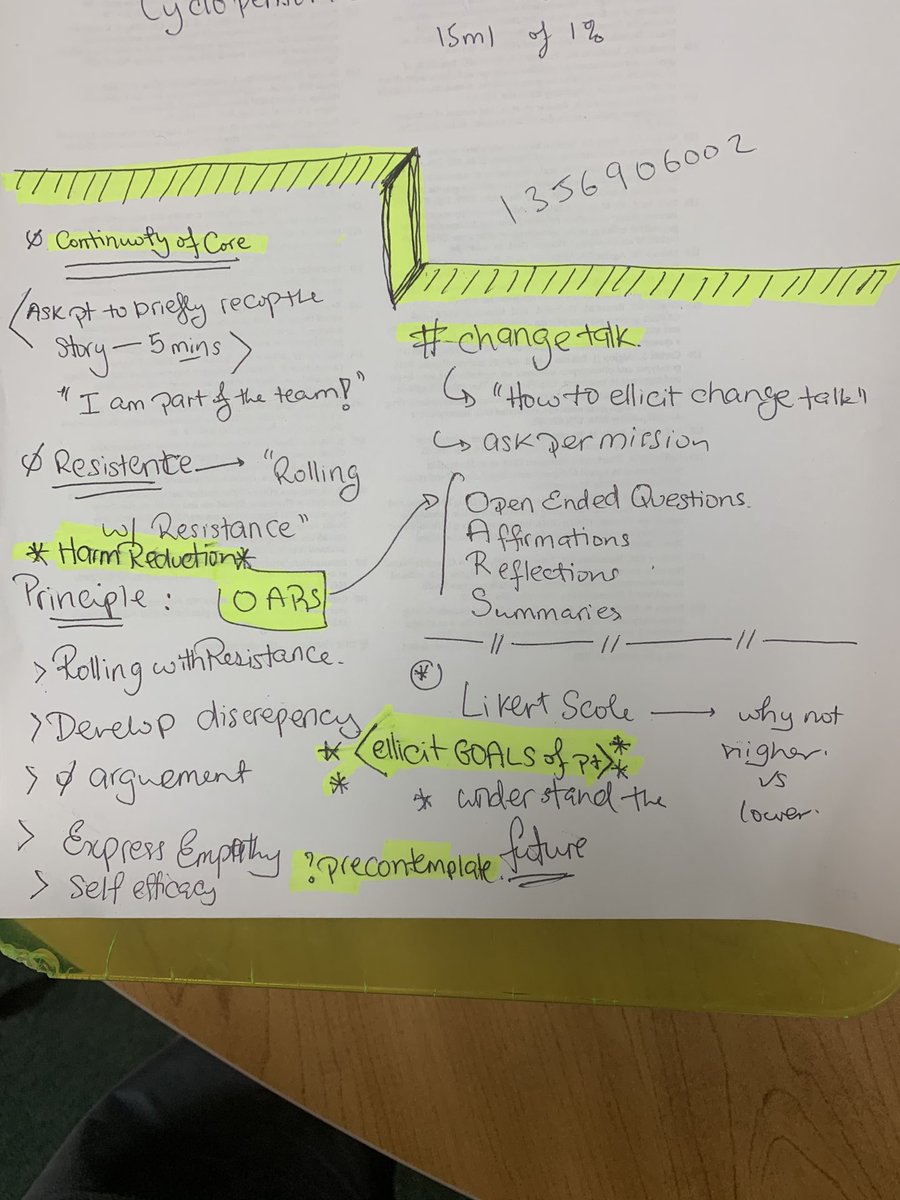 15ml of 1%
1356906002
Ø Continuoty of Core
<Ask pt to briefly recap the
story — 5 mins>
"I am part of the team!"
Ø Resistence → "Rolling
w/ Resistance"
* Harm Reduction *
Principle : OARS
> Rolling with Resistance.
> Develop discrepency
> Ø arguement
> Express Empathy
> Self efficacy
# change talk.
↳ "How to ellicit change talk"
↳ ask permission
Open Ended Questions.
Affirmations
Reflections
Summaries
* Likert Scole → why not
higher.
vs
lower.
* <ellicit GOALS of pt> *
* *
* understand the
future
? precontemplate.